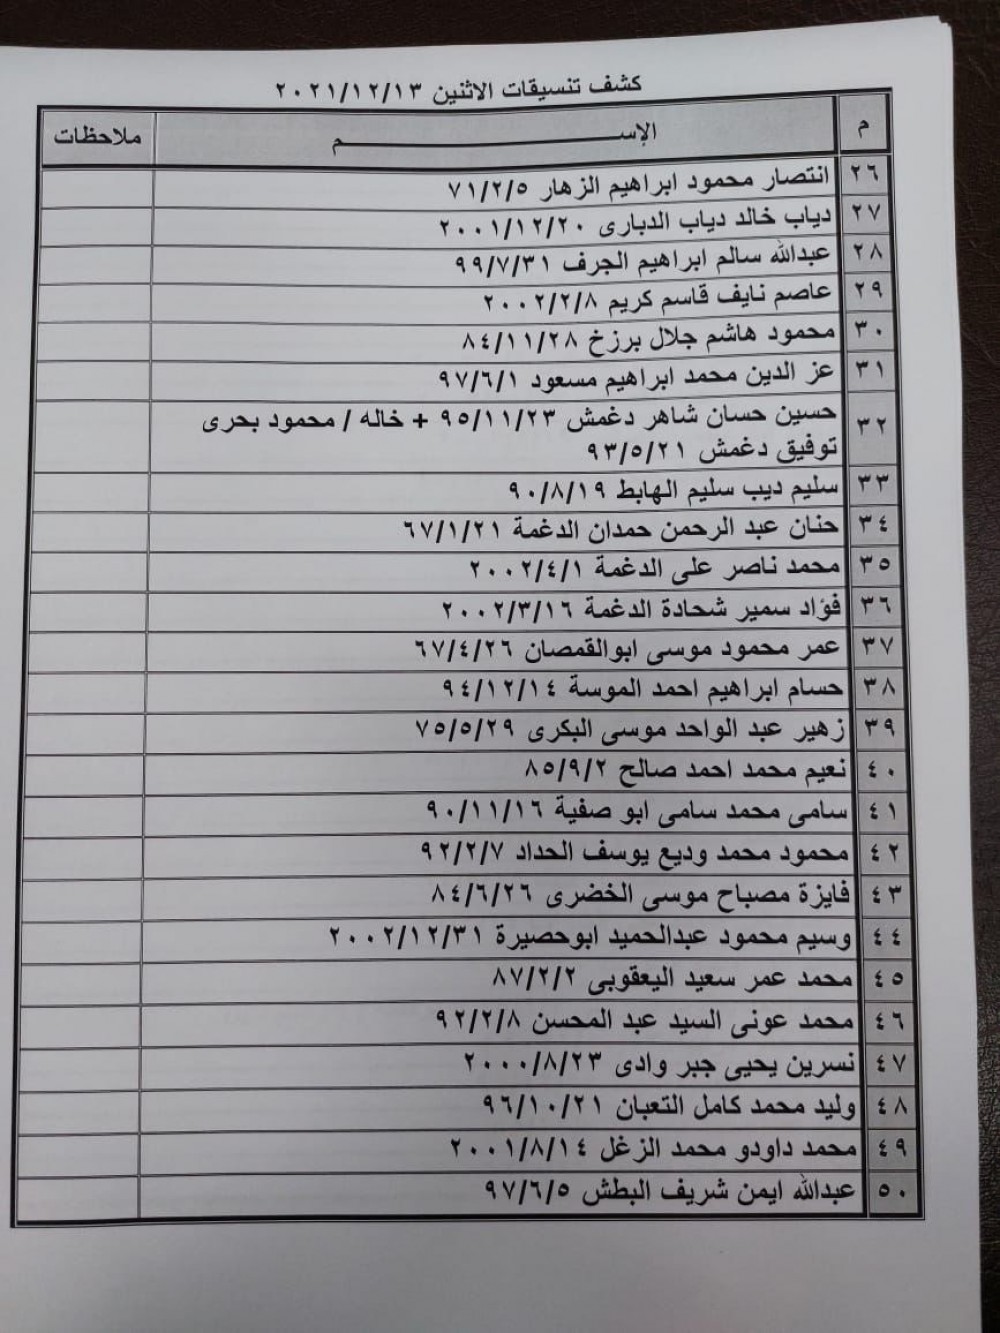 كشف تنسيقات الاثنين ٢٠٢١/١٢/١٣
م الإســـــــــم ملاحظات
٢٦ انتصار محمود ابراهيم الزهار ٧١/٢/٥
٢٧ دياب خالد دياب الدبارى ٢٠٠١/١٢/٢٠
٢٨ عبدالله سالم ابراهيم الجرف ٩٩/٧/٣١
٢٩ عاصم نايف قاسم كريم ٢٠٠٢/٢/٨
٣٠ محمود هاشم جلال برزخ ٨٤/١١/٢٨
٣١ عز الدين محمد ابراهيم مسعود ٩٧/٦/١
٣٢ حسين حسان شاهر دغمش ٩٥/١١/٢٣ + خاله / محمود بحرى
توفيق دغمش ٩٣/٥/٢١
٣٣ سليم ديب سليم الهابط ٩٠/٨/١٩
٣٤ حنان عبد الرحمن حمدان الدغمة ٦٧/١/٢١
٣٥ محمد ناصر على الدغمة ٢٠٠٢/٤/١
٣٦ فؤاد سمير شحادة الدغمة ٢٠٠٢/٣/١٦
٣٧ عمر محمود موسى ابوالقمصان ٦٧/٤/٢٦
٣٨ حسام ابراهيم احمد الموسة ٩٤/١٢/١٤
٣٩ زهير عبد الواحد موسى البكرى ٧٥/٥/٢٩
٤٠ نعيم محمد احمد صالح ٨٥/٩/٢
٤١ سامى محمد سامى ابو صفية ٩٠/١١/١٦
٤٢ محمود محمد وديع يوسف الحداد ٩٢/٢/٧
٤٣ فايزة مصباح موسى الخضرى ٨٤/٦/٢٦
٤٤ وسيم محمود عبدالحميد ابوحصيرة ٢٠٠٢/١٢/٣١
٤٥ محمد عمر سعيد اليعقوبى ٨٧/٢/٢
٤٦ محمد عونى السيد عبد المحسن ٩٢/٢/٨
٤٧ نسرين يحيى جبر وادى ٢٠٠٠/٨/٢٣
٤٨ وليد محمد كامل التعبان ٩٦/١٠/٢١
٤٩ محمد داودو محمد الزغل ٢٠٠١/٨/١٤
٥٠ عبدالله ايمن شريف البطش ٩٧/٦/٥